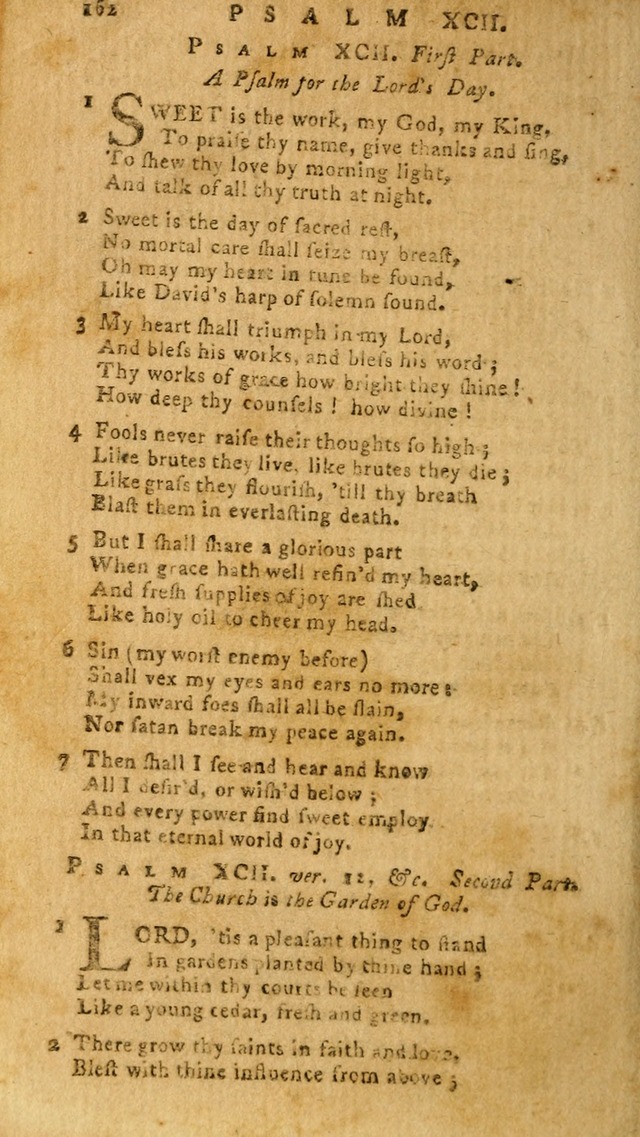 162 PSALM XCII.
PSALM XCII. Firſt Part.
A Pſalm for the Lord's Day.
1 SWEET is the work, my God, my King,
To praiſe thy name, give thanks and ſing,
To ſhew thy love by morning light,
And talk of all thy truth at night.
2 Sweet is the day of ſacred reſt,
No mortal care ſhall ſeize my breaſt,
Oh may my heart in tune be found,
Like David's harp of ſolemn ſound.
3 My heart ſhall triumph in my Lord,
And bleſs his works, and bleſs his word ;
Thy works of grace how bright they ſhine !
How deep thy counſels ! how divine !
4 Fools never raiſe their thoughts ſo high ;
Like brutes they live, like brutes they die ;
Like graſs they flouriſh, 'till thy breath
Blaſt them in everlaſting death.
5 But I ſhall ſhare a glorious part
When grace hath well refin'd my heart,
And freſh ſupplies of joy are ſhed
Like holy oil to cheer my head.
6 Sin (my worſt enemy before)
Shall vex my eyes and ears no more :
My inward foes ſhall all be ſlain,
Nor ſatan break my peace again.
7 Then ſhall I ſee and hear and know
All I deſir'd, or wiſh'd below ;
And every power find ſweet employ
In that eternal world of joy.
PSALM XCII. ver. 12, &c. Second Part.
The Church is the Garden of God.
1 LORD, 'tis a pleaſant thing to ſtand
In gardens planted by thine hand ;
Let me within thy courts be ſeen
Like a young cedar, freſh and green.
2 There grow thy ſaints in faith and love,
Bleſt with thine influence from above ;